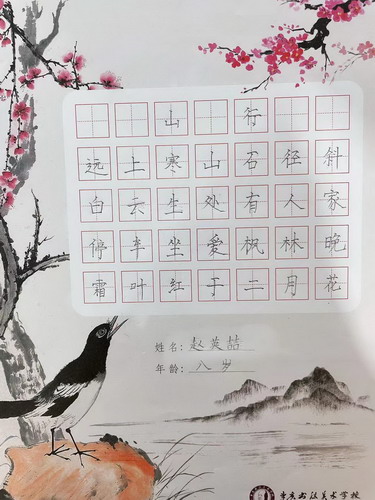 山行
远上寒山石径斜
白云生处有人家
停车坐爱枫林晚
霜叶红于二月花
姓名：赵英喆
年龄：八岁
书法美术学校